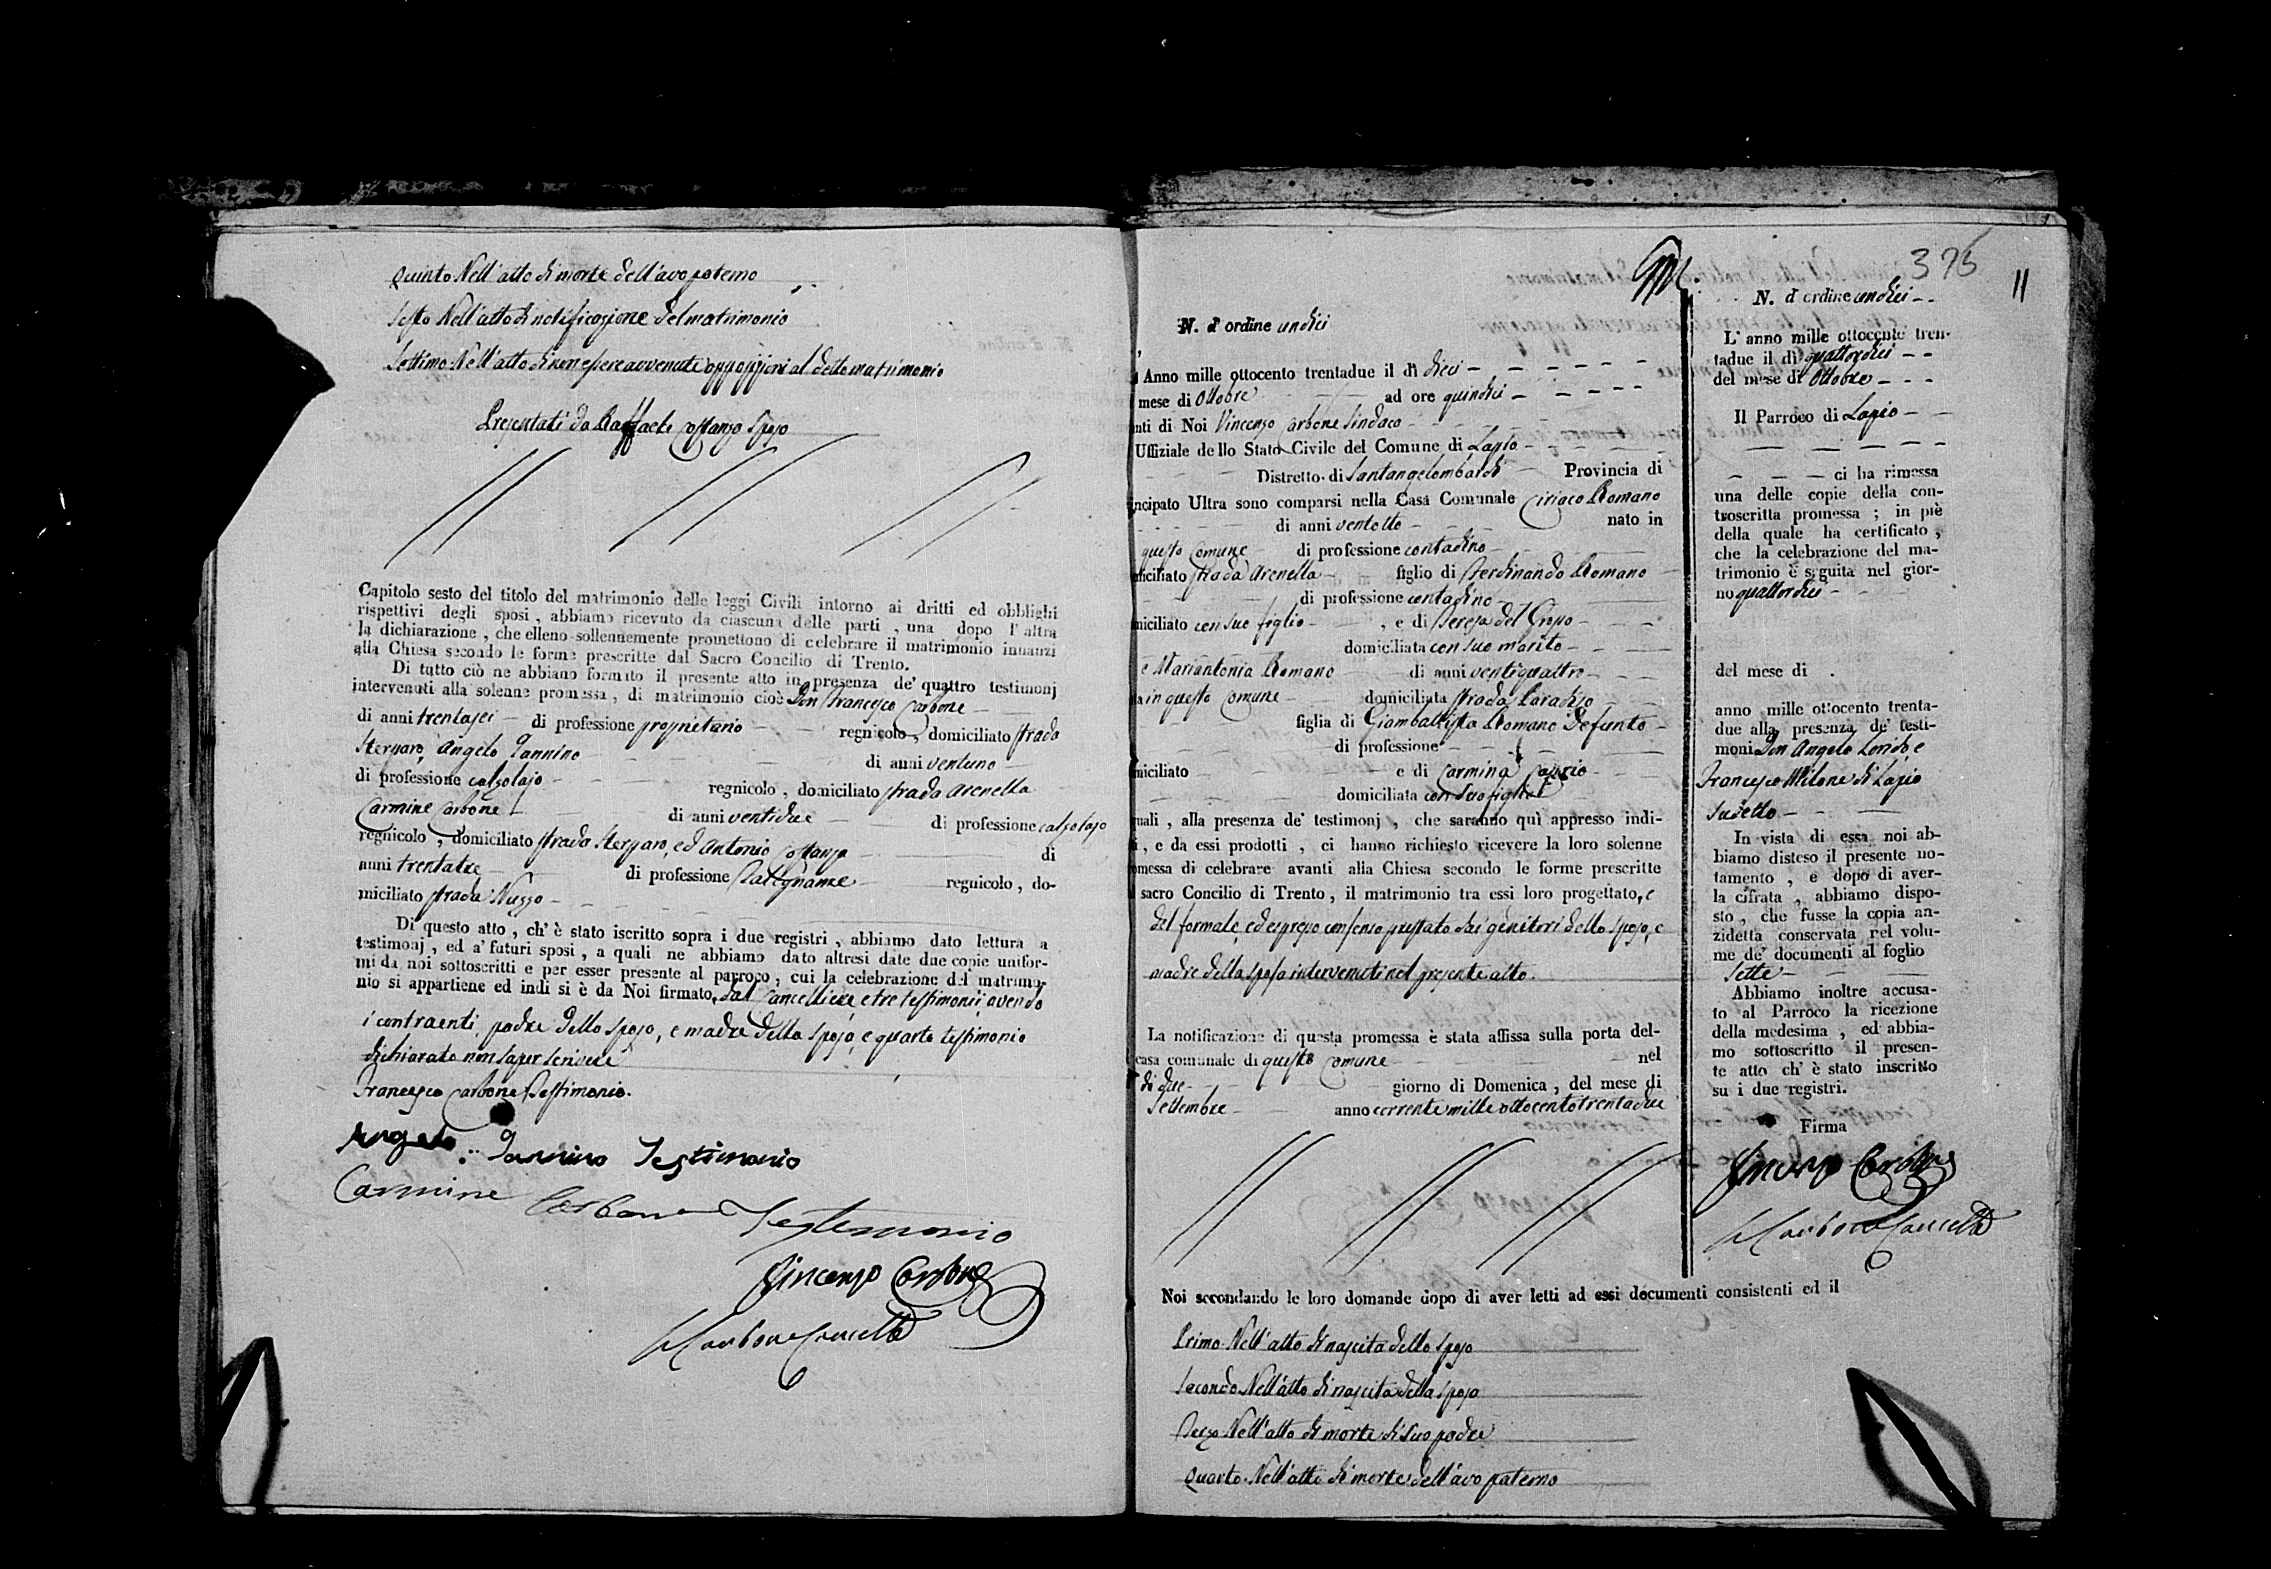 Quinto Nell'atto di morte dell'avo paterno
Sesto Nell'atto di notificazione del matrimonio
Settimo Nell'atto di non essere avvenute opposizioni al detto matrimonio
Presentati da Raffaele Costanzo Sposo
Capitolo sesto del titolo del matrimonio delle leggi Civili intorno ai dritti ed obblighi
rispettivi degli sposi, abbiamo ricevuto da ciascuna delle parti, una dopo l'altra
la dichiarazione, che elleno sollennemente promettono di celebrare il matrimonio innanzi
alla Chiesa secondo le forme prescritte dal Sacro Concilio di Trento.
Di tutto ciò ne abbiano formato il presente atto in presenza de' quattro testimonj
intervenuti alla solenne promessa, di matrimonio cioè Don Francesco Carbone
di anni trentasei di professione proprietario regnicolo, domiciliato strada
Angelo Iannino di anni ventuno
di professione calzolajo regnicolo, domiciliato strada Arenella
Carmine Carbone di anni ventidue di professione calzolajo
regnicolo, domiciliato strada ed Antonio Costanzo di
anni trentatre di professione Falegname regnicolo, do-
miciliato strada Nuzzo
Di questo atto, ch'è stato iscritto sopra i due registri, abbiamo dato lettura a
testimonj, ed a' futuri sposi, a quali ne abbiamo dato altresi date due copie unifor-
mi da noi sottoscritti e per esser presente al parroco, cui la celebrazione del matrimo-
nio si appartiene ed indi si è da Noi firmato, dal Cancelliere, e tre testimonii, avendo
i contraenti, padre dello sposo, e madre della sposa, e quarto testimonio
dichiarato non saper scrivere
Francesco Carbone Testimonio.
Angelo Iannino Testimonio
Carmine Carbone Testimonio
Vincenzo Carbone
Carbone Cancelle
375
11
N. d'ordine undici
Anno mille ottocento trentadue il dì dieci
mese di Ottobre ad ore quindici
nti di Noi Vincenzo Carbone Sindaco
Uffiziale dello Stato Civile del Comune di Lapio
Distretto di Santangelombardi Provincia di
ncipato Ultra sono comparsi nella Casa Comunale Ciriaco Romano
di anni ventotto nato in
questo Comune di professione contadino
miciliato strada Arenella figlio di Ferdinando Romano
di professione contadino
miciliato con suo figlio, e di Teresa del Grosso
domiciliata con suo marito
e Mariantonia Romano di anni ventiquattro
ta in questo Comune domiciliata strada Paradiso
figlia di Giambattista Romano Defunto
di professione
miciliato e di Carmina Caprio
domiciliata con sua figlia
quali, alla presenza de' testimonj, che saranno quì appresso indi-
i, e da essi prodotti, ci hanno richiesto ricevere la loro solenne
omessa di celebrare avanti alla Chiesa secondo le forme prescritte
sacro Concilio di Trento, il matrimonio tra essi loro progettato, e
del formale, ed espresso consenso prestato dai genitori dello sposo, e
madre della sposa intervenuti nel presente atto.
La notificazione di questa promessa è stata affissa sulla porta del-
casa comunale di questo Comune nel
di due giorno di Domenica, del mese di
Settembre anno corrente mille ottocento trentadue
Noi secondando le loro domande dopo di aver letti ad essi documenti consistenti ed il
Primo Nell'atto di nascita dello sposo
Secondo Nell'atto di nascita della sposa
Terzo Nell'atto di morte di suo padre
Quarto Nell'atto di morte dell'avo paterno
N. d'ordine undici
L'anno mille ottocento tren-
tadue il dì quattordici
del mese di Ottobre
Il Parroco di Lapio
ci ha rimessa
una delle copie della con-
troscritta promessa; in piè
della quale ha certificato,
che la celebrazione del ma-
trimonio è seguita nel gior-
no quattordici
del mese di
anno mille ottocento trenta-
due alla presenza de' testi-
moni Don Angelo e
Francesco Milone di Lapio
sudetto
In vista di essa noi ab-
biamo disteso il presente no-
tamento, e dopo di aver-
la cifrata, abbiamo dispo-
sto, che fusse la copia an-
zidetta conservata nel volu-
me de' documenti al foglio
sette
Abbiamo inoltre accusa-
to al Parroco la ricezione
della medesima, ed abbia-
mo sottoscritto il presen-
te atto ch'è stato inscritto
su i due registri.
Firma
Vincenzo Carbone
Carbone Cancelle